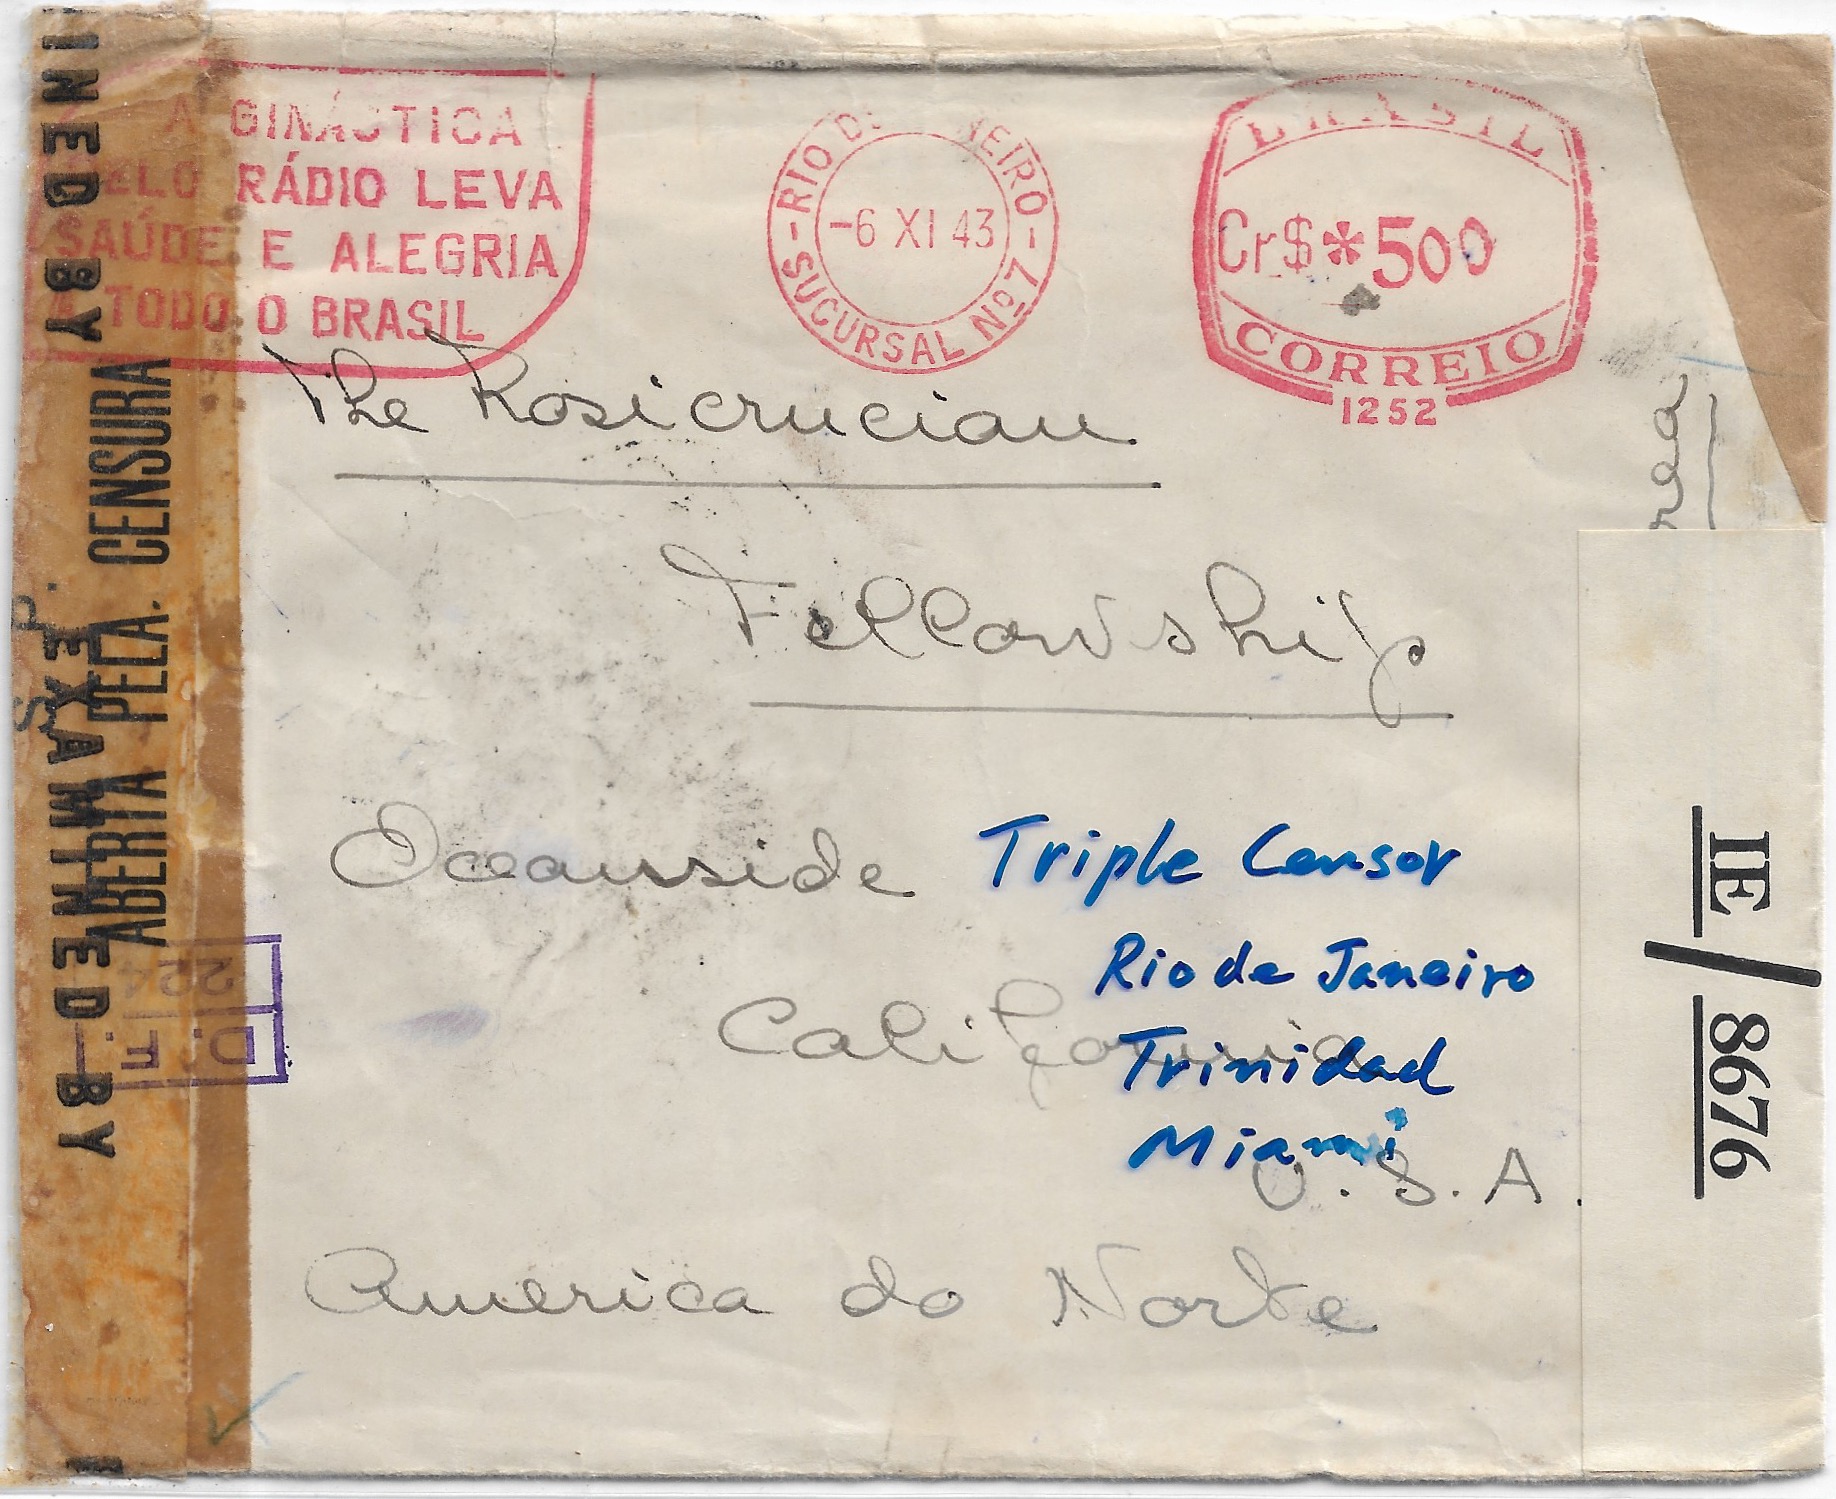 A GINÁSTICA
PELO RÁDIO LEVA
SAÚDE E ALEGRIA
A TODO O BRASIL
RIO DE JANEIRO
-6 XI 43
SUCURSAL Nº 7
BRASIL
Cr$ *500
CORREIO
1252
The Rosicrucian
Fellowship
Oceansside
California
U.S.A.
America do Norte
Triple Censor
Rio de Janeiro
Trinidad
Miami
INED BY
EXAMINED BY
ABERTA PELA CENSURA
D. F.
224
IE/8676